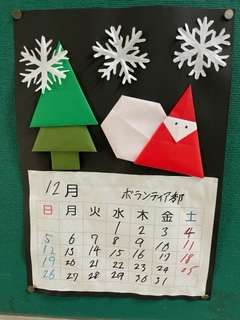 12月 ボランティア部
日 月 火 水 木 金 土
1 2 3 4
5 6 7 8 9 10 11
12 13 14 15 16 17 18
19 20 21 22 23 24 25
26 27 28 29 30 31